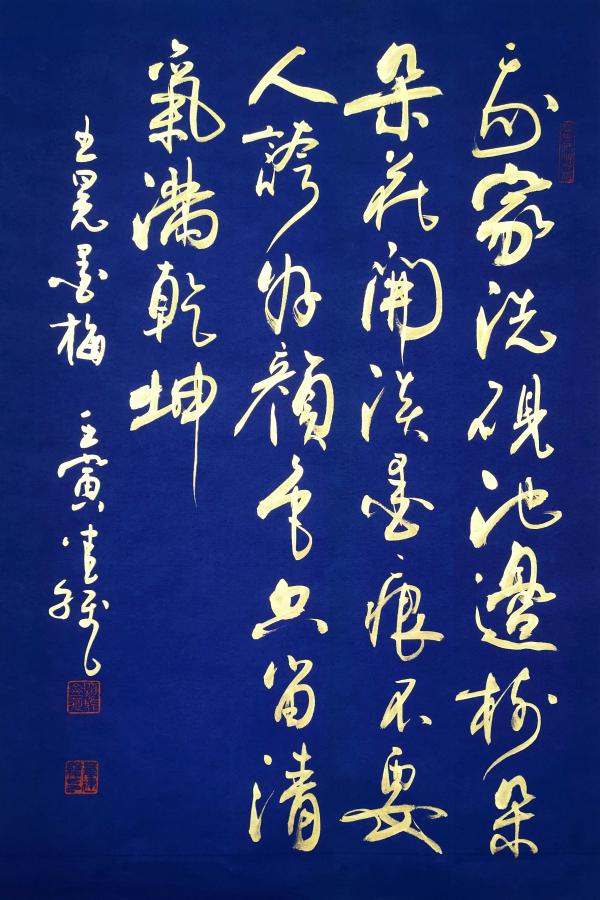 我家洗硯池邊樹朵
朵花開淡墨痕不要
人誇好顏色只留清
氣滿乾坤
王冕墨梅 壬寅